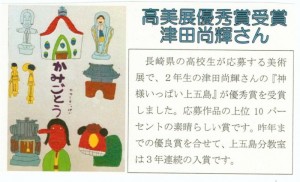 高美展優秀賞受賞
津田尚輝さん
かみごとう
長崎県の高校生が応募する美術
展で、2年生の津田尚輝さんの『神
様いっぱい上五島』が優秀賞を受賞
しました。応募作品の上位 10 パー
セントの素晴らしい賞です。昨年ま
での優良賞を合せて、上五島分教室
は3年連続の入賞です。